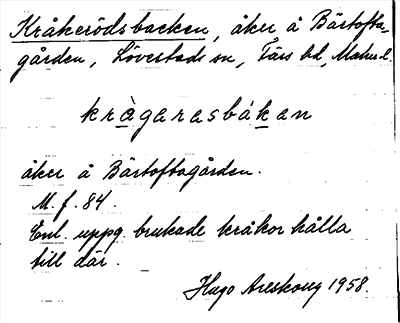 Kråkerödsbacken, åker å Bärtofta-
gården, Lövestads sn, Färs hd, Malmh. l.
kràgarasbákan
åker å Bärtoftagården.
M. f. 84.
Enl. uppg. brukade kråkor hålla
till där.
Hugo Areskoug 1958.